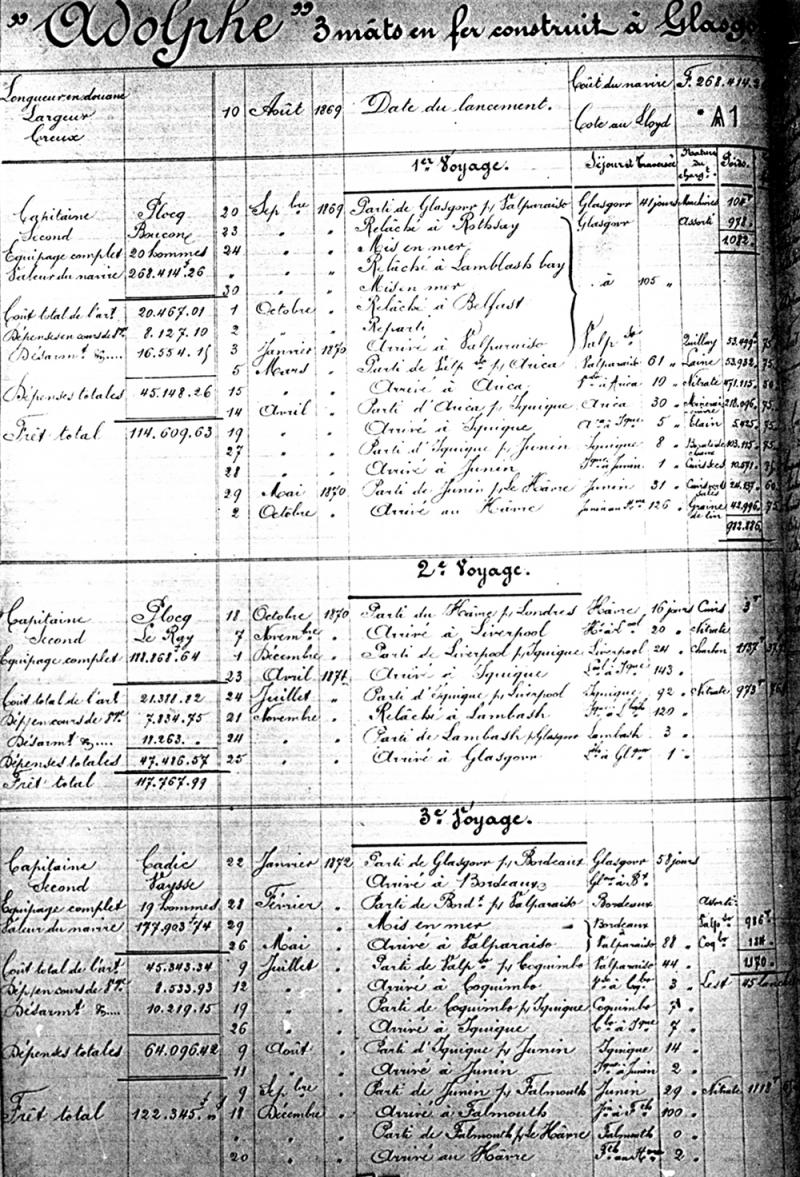 " Adolphe " 3 mâts en fer construit à Glasgo
Longueur en douane
Largeur
Creux
10 Août 1869 Date du lancement.
Coût du navire F. 268.414.2
Cote au Lloyd A1
1er Voyage. Séjours et Traversée Nature du charg.t Poids.
Capitaine Plocq 20 Sepbre 1869 Parti de Glasgow p/ Valparaiso Glasgow 41 jours Machines 104
Second Boucon 23 " " Relâché à Rothsay Glasgow Assorti 978
Equipage complet 20 hommes 24 " " Mis en mer 1082
Valeur du navire 268.414.26 " " " Relâché à Lamblash bay
30 " " Mis en mer à 105 "
Coût total de l'art 20.467.01 1 Octobre " Relâché à Belfast
Dépenses en cours de Ve. 8.127.10 2 " " Reparti
Désarmt &.... 16.554.15 3 Janvier 1870 Arrivé à Valparaiso Valpso Quillay 53.499 75
5 Mars " Parti de Valpso p/ Arica Valparaiso 61 " Laine 53.932 75
Dépenses totales 45.148.26 15 " " Arrivé à Arica Vso à Arica 10 " Nitrate 471.115
14 Avril " Parti d'Arica p/ Iquique Arica 30 " 218.096 75
Frêt total 114.609.63 19 " " Arrivé à Iquique Aca à Ique 5 " Etain 5.425 75
27 " " Parti d'Iquique p/ Junin Iquique 8 " 103.115 75
28 " " Arrivé à Junin Ique à Junin 1 " Cuirs secs 10.571
29 Mai 1870 Parti de Junin p/ le Hâvre Junin 31 " Cuirs salés 24.137 60
2 Octobre " Arrivé au Hâvre Junin au Hvre 126 " Graine de lin 42.996 75
912.886
2e Voyage.
Capitaine Plocq 18 Octobre 1870 Parti du Hâvre p/ Londres Hâvre 16 jours Cuirs 3T
Second Le Ray 7 Novembre " Arrivé à Liverpool 20 " Nitrate
Equipage complet 118.868.64 1 Décembre " Parti de Liverpool p/ Iquique Liverpool 24 " Charbon 1137T
23 Avril 1871 Arrivé à Iquique Lool à Ique 143 "
Coût total de l'art 21.388.82 24 Juillet " Parti d'Iquique p/ Liverpool Iquique 92 " Nitrate 973T
Dép/ en cours de Ve. 7.834.75 21 Novembre " Relâché à Lambash 120 "
Désarmt &.... 18.263. " 24 " " Parti de Lambash p/ Glasgow Lambash 3 "
Dépenses totales 47.486.57 25 " " Arrivé à Glasgow 1 "
Frêt total 117.767.99
3e Voyage.
Capitaine Cadic 22 Janvier 1872 Parti de Glasgow p/ Bordeaux Glasgow 58 jours
Second Vaysse Arrivé à Bordeaux Glow à Bx
Equipage complet 19 hommes 28 Février " Parti de Bord.x p/ Valparaiso Bordeaux Assorti
Valeur du navire 177.903.74 29 " " Mis en mer Bordeaux Valpso 986T
26 Mai " Arrivé à Valparaiso Valparaiso 88 " Coqbo 184
Coût total de l'art 45.343.34 9 Juillet " Parti de Valpso p/ Coquimbo Valparaiso 44 " 1170
Dép/ en cours de Ve. 8.533.93 12 " " Arrivé à Coquimbo 3 " Lest 45
Désarmt &.... 10.219.15 19 " " Parti de Coquimbo p/ Iquique Coquimbo 7 "
26 " " Arrivé à Iquique Cbo à Ique 7 "
Dépenses totales 64.096.42 9 Août " Parti d'Iquique p/ Junin Iquique 14 "
11 " " Arrivé à Junin Ique à Junin 2 "
9 Sepbre " Parti de Junin p/ Falmouth Junin 29 " Nitrate 1118T
Frêt total 122.345. " 18 Décembre " Arrivé à Falmouth 100 "
" " " Parti de Falmouth p/ le Hâvre Falmouth 0 "
20 " " Arrivé au Hâvre 2 "